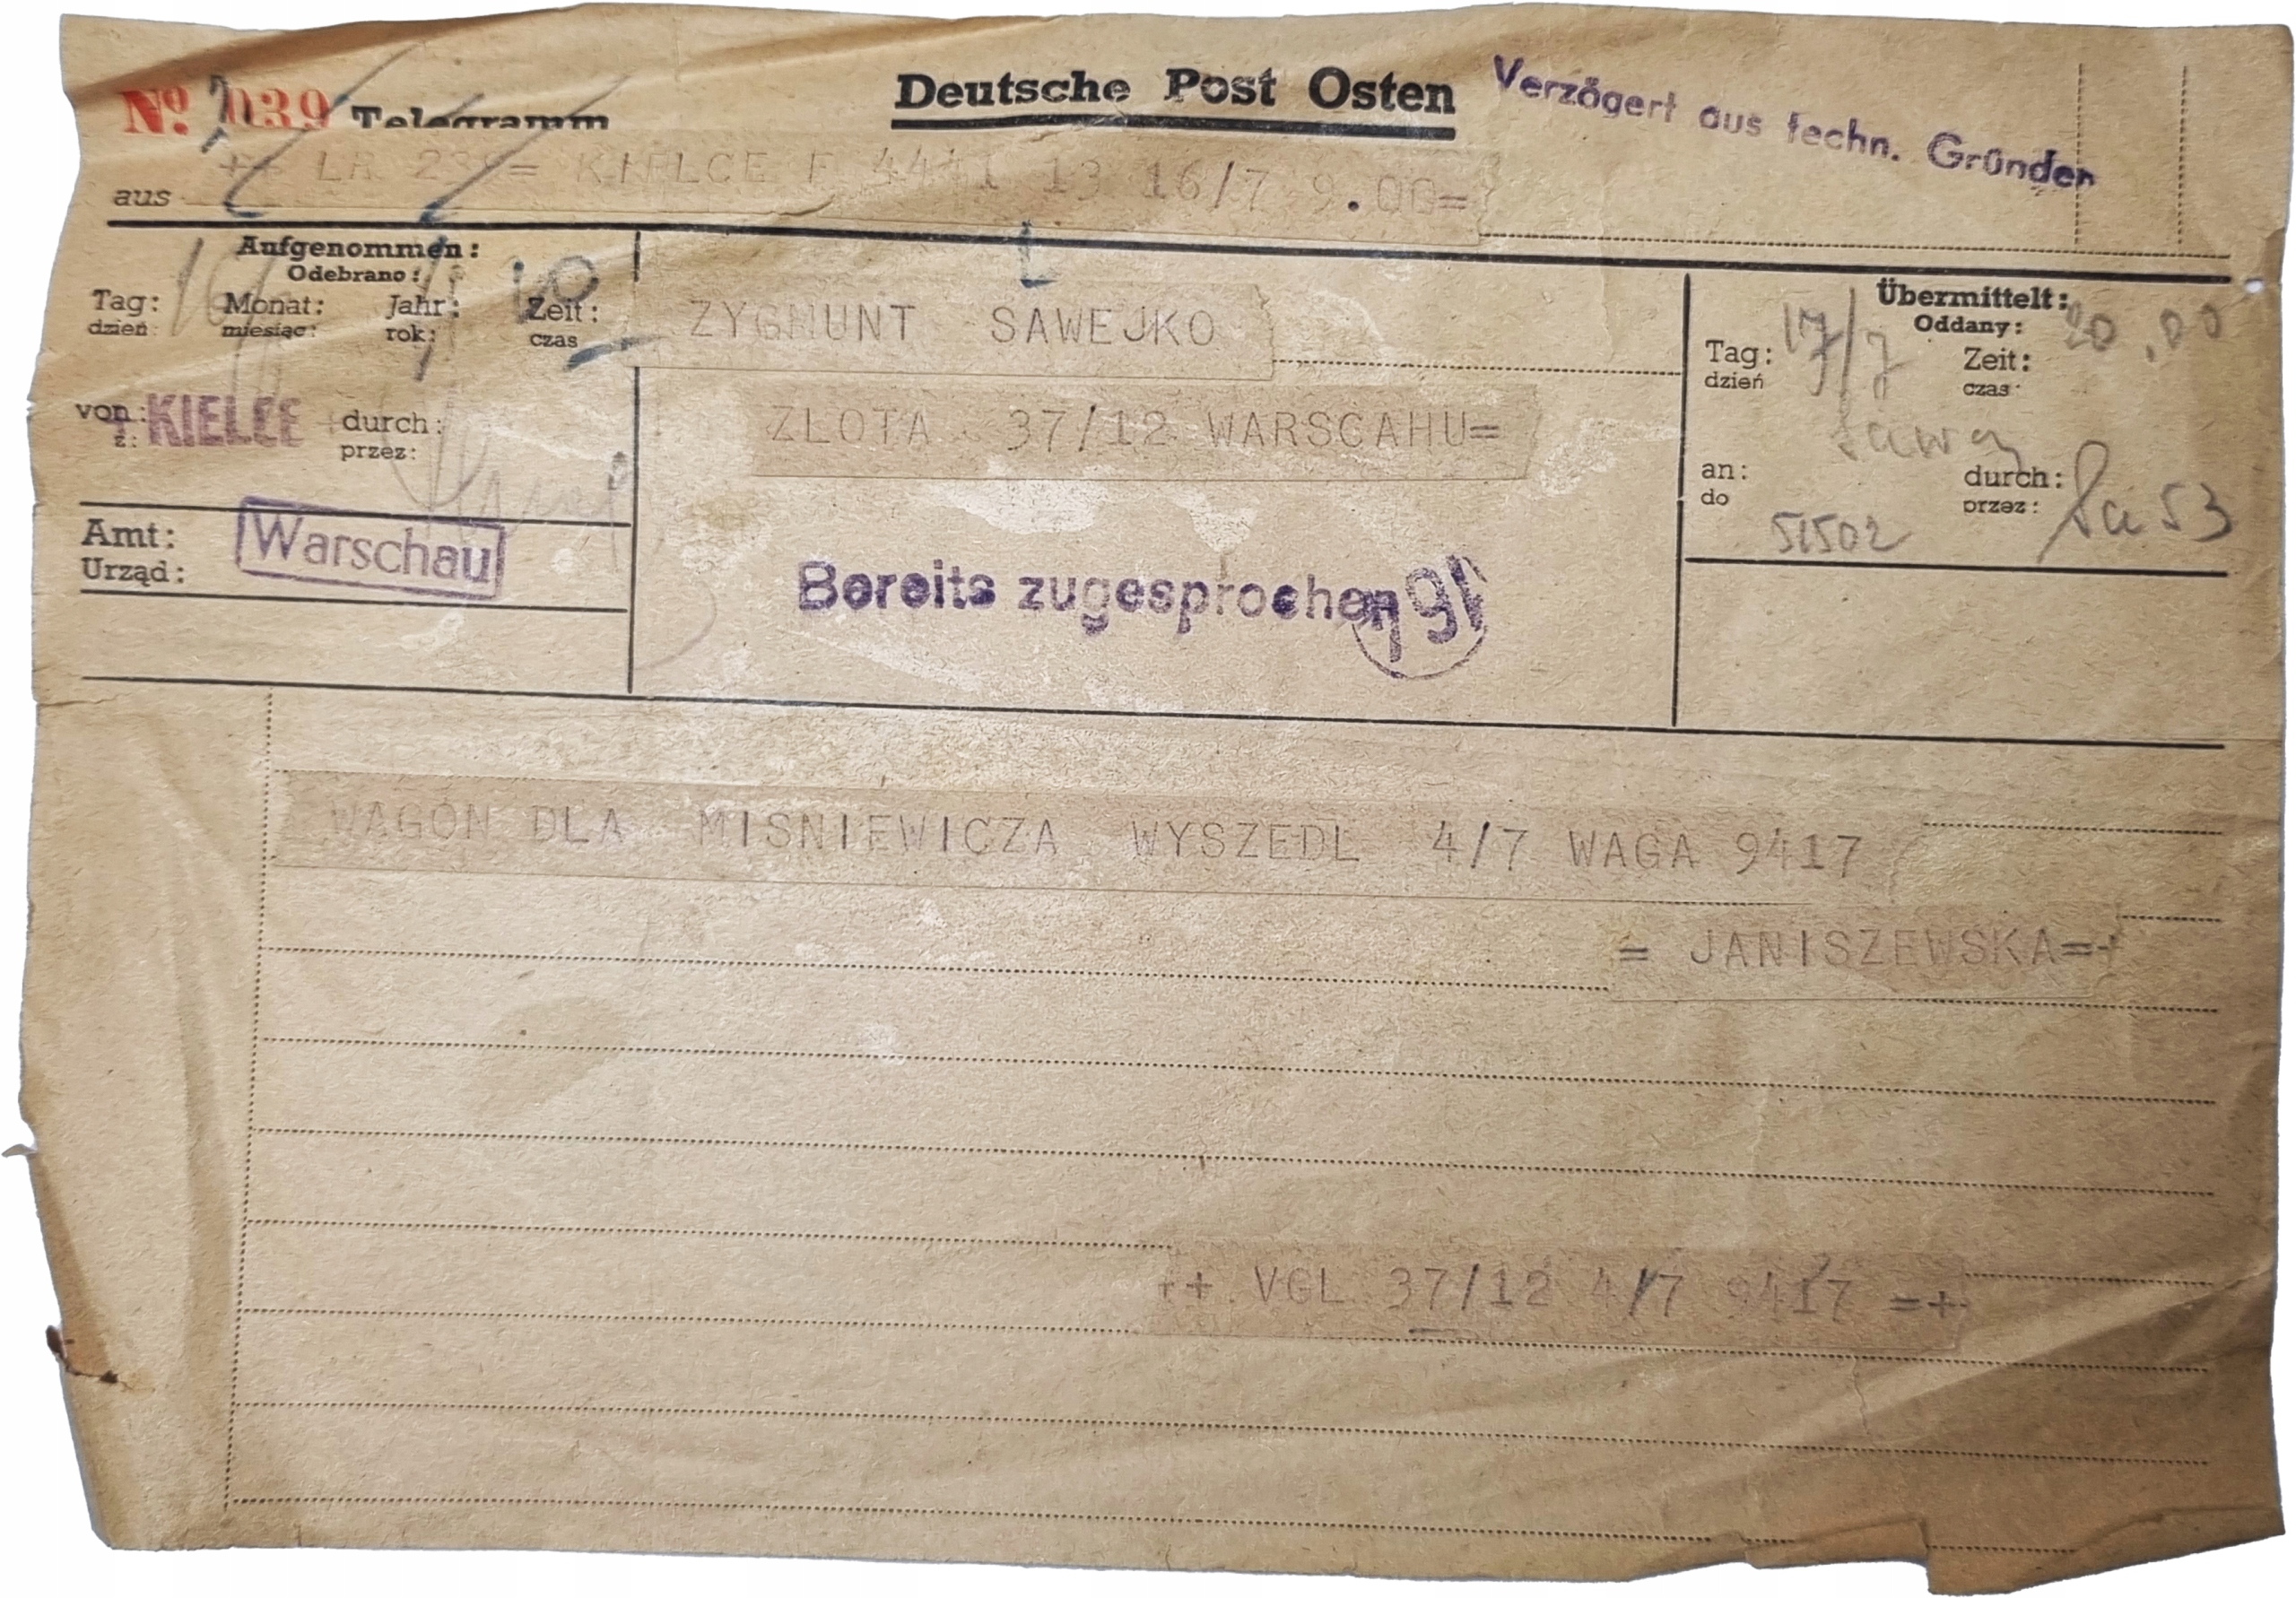 Nº 039 Telegramm
Deutsche Post Osten
Verzögert aus techn. Gründen
aus
LR 239= KIELCE F 4441 13 16/7 9.00=
Aufgenommen:
Odebrano:
Tag: Monat: Jahr: Zeit:
dzień: miesiąc: rok: czas
von: KIELCE durch:
z: przez:
Amt: Warschau
Urząd:
ZYGMUNT SAWEJKO
ZLOTA 37/12 WARSCAHU=
Bereits zugesprochen
91
Übermittelt:
Oddany:
Tag: 17/7 Zeit: 20.00
dzień czas:
an: durch:
do przez:
51502 53
WAGON DLA MISNIEWICZA WYSZEDL 4/7 WAGA 9417
= JANISZEWSKA=+
++ VGL 37/12 4/7 9417 =+